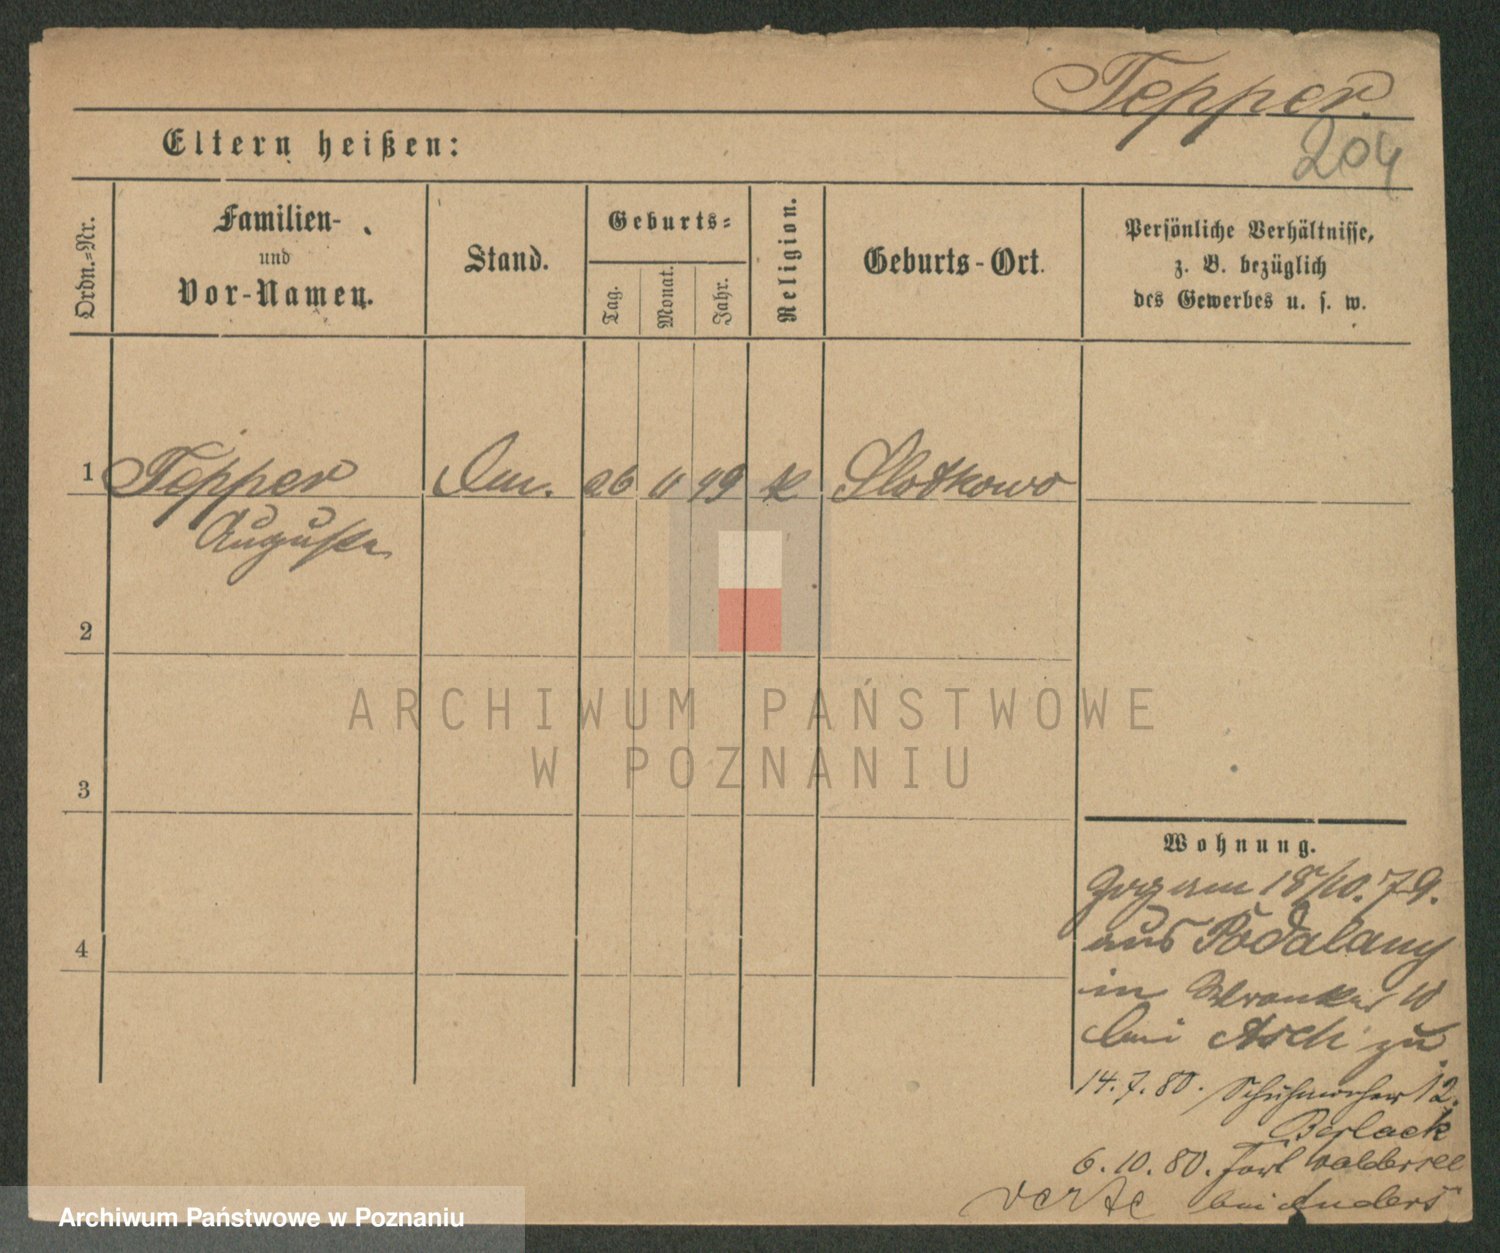 Tepper.
204
Eltern heißen:
Ordn.-Nr.
Familien-
und
Vor-Namen.
Stand.
Geburts-
Tag.
Monat.
Jahr.
Religion.
Geburts-Ort.
Persönliche Verhältnisse,
z. B. bezüglich
des Gewerbes u. s. w.
1
Tepper
Auguste
26
k
Slotkowo
2
3
4
ARCHIWUM PAŃSTWOWE
W POZNANIU
Wohnung.
am 18/10. 79.
aus Podalany
in 10
bei Asch zu
14. 7. 80. Schuhmacher 12.
6. 10. 80. Fort Waldersee
verte bei Anders
Archiwum Państwowe w Poznaniu